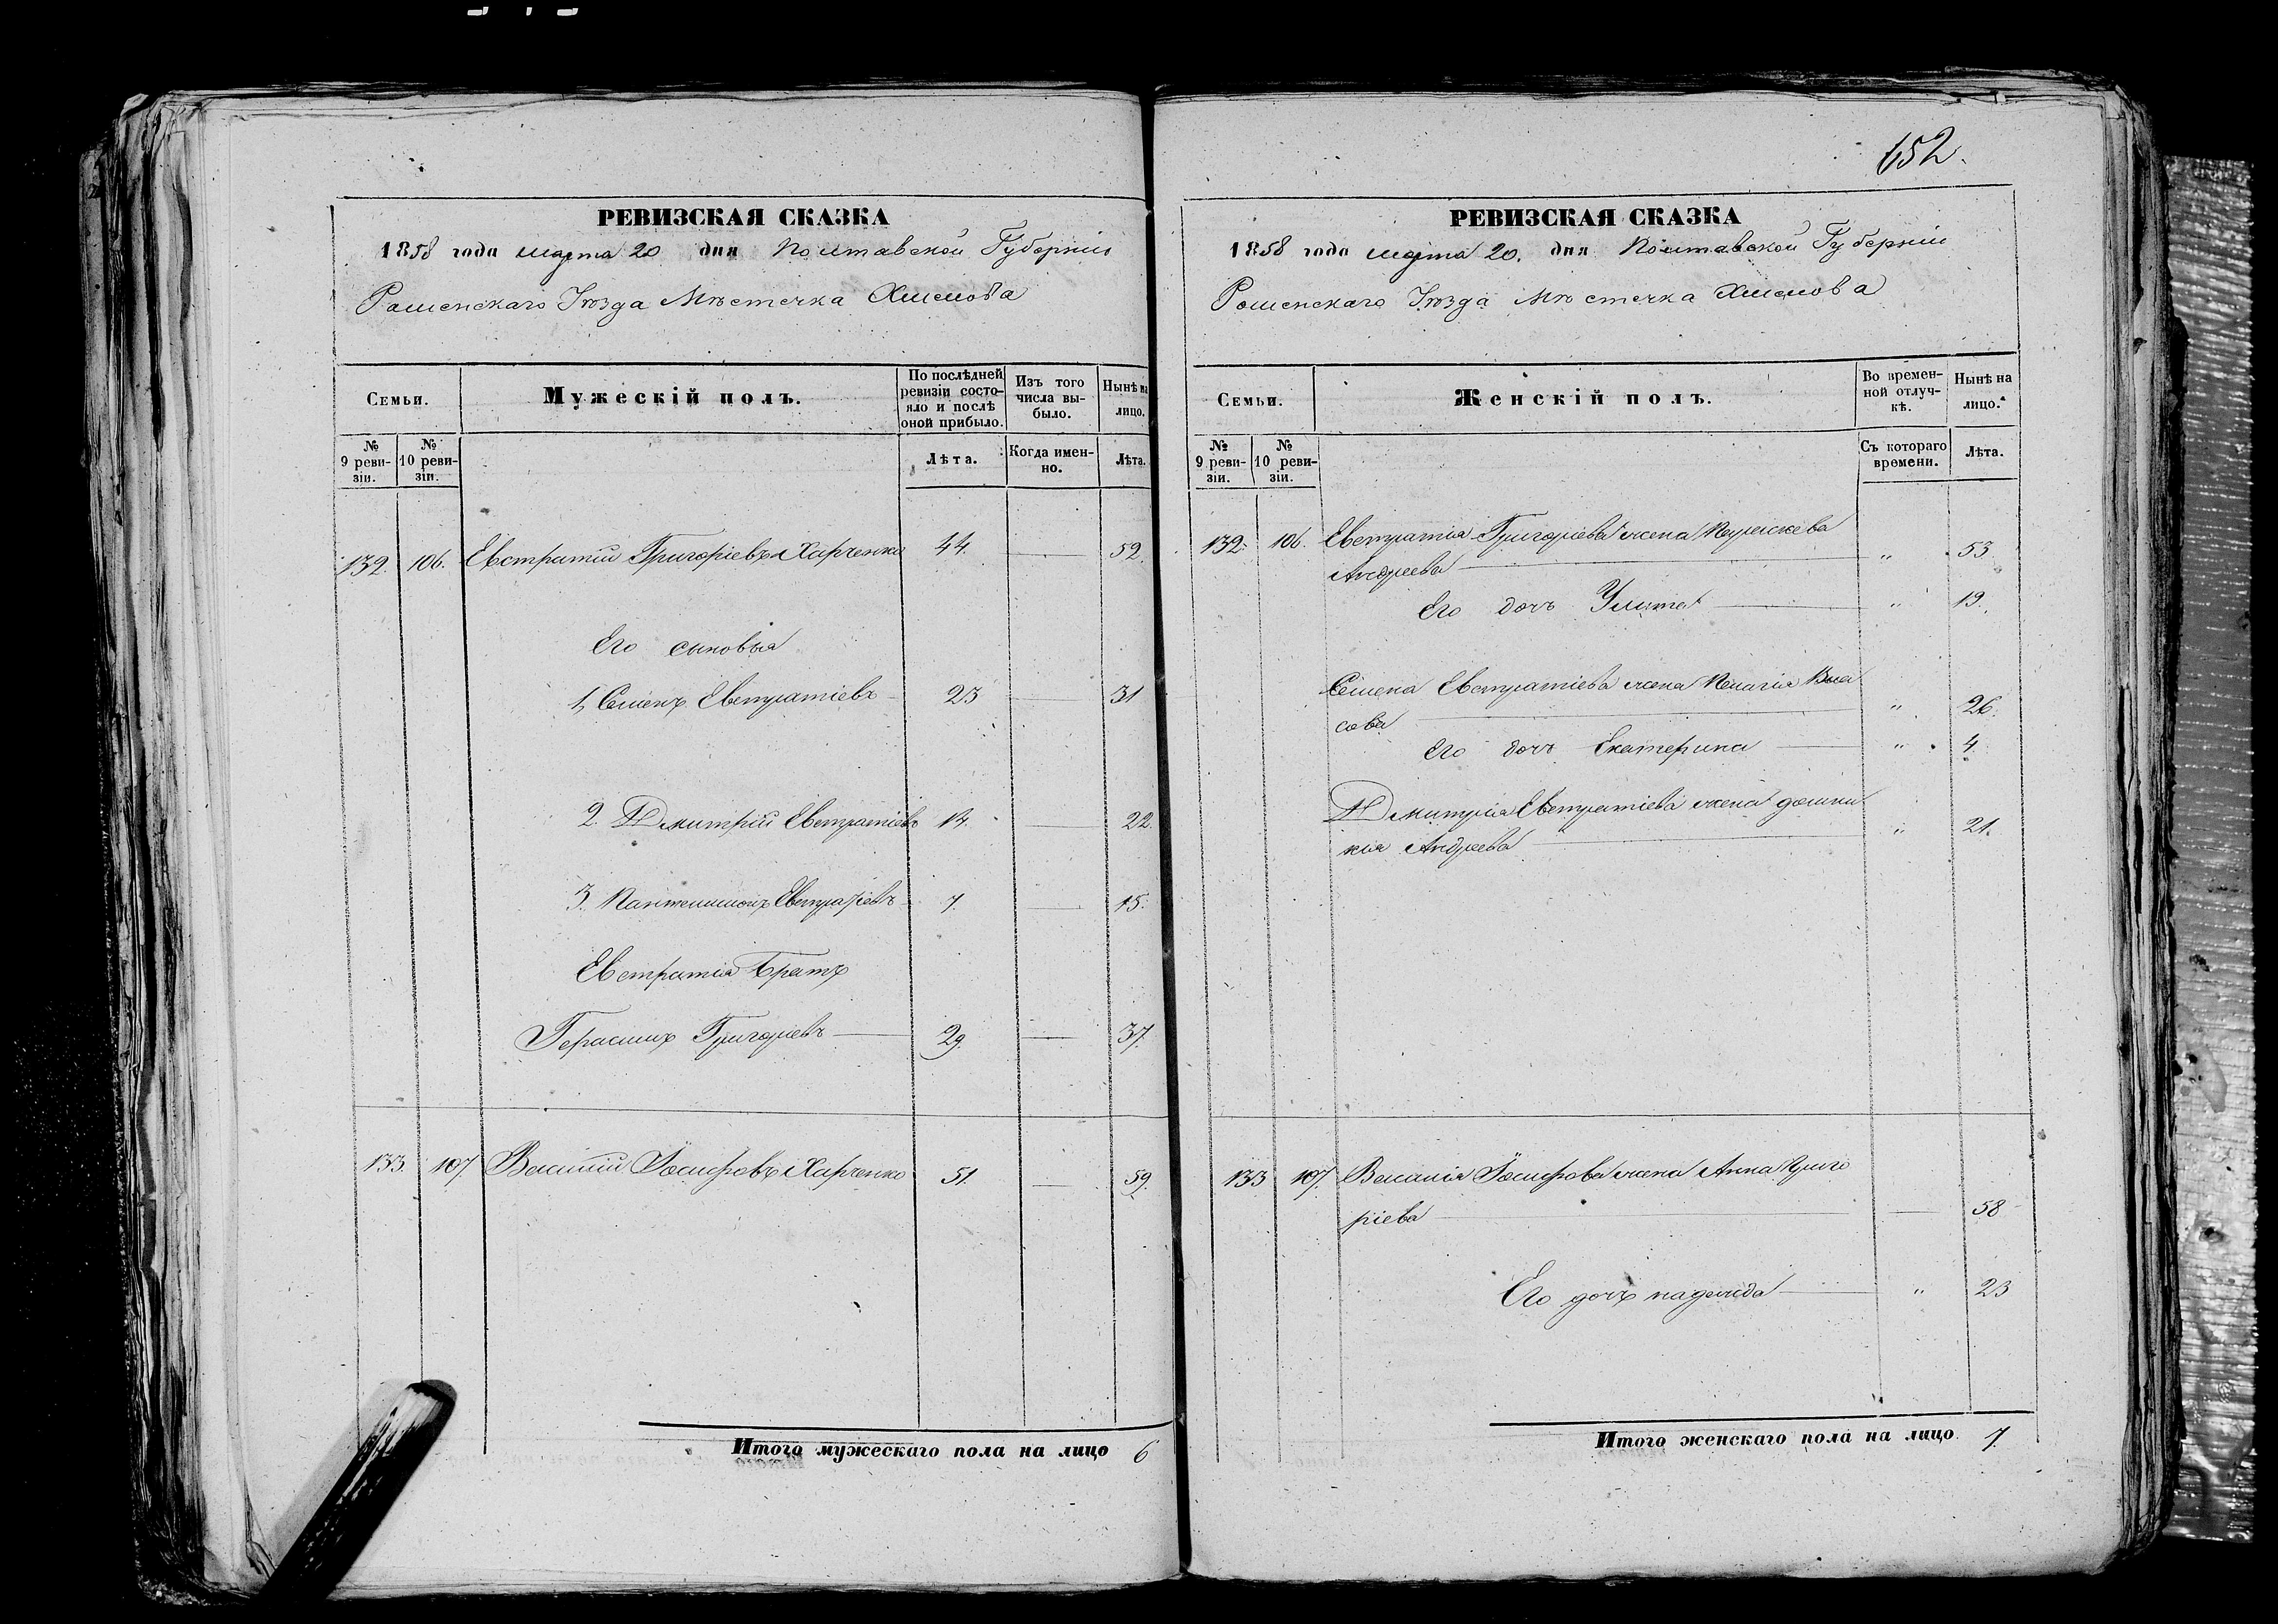 652.
РЕВИЗСКАЯ СКАЗКА
1858 года марта 20 дня Полтавской Губерніи
Роменскаго Уѣзда Мѣстечка Хмелова
Семьи.
Мужескій полъ.
По послѣдней ревизіи состояло и послѣ оной прибыло.
Изъ того числа выбыло.
Нынѣ на лицо.
№ 9 ревизіи.
№ 10 ревизіи.
Лѣта.
Когда именно.
Лѣта.
132. 106. Евстратій Григоріевъ Харченко 44. — 52.
Его сыновья
1, Семенъ Евстратіевъ 23 — 31
2. Дмитрій Евстратіевъ 14. — 22.
3. Пантелимонъ Евстратіевъ 7. — 15.
Евстратія Братъ
Герасимъ Григоріевъ — 29. — 37.
133. 107 Василій Іосифовъ Харченко 51. — 59.
Итого мужескаго пола на лицо 6
РЕВИЗСКАЯ СКАЗКА
1858 года марта 20. дня Полтавской Губерніи
Роменскаго Уѣзда Мѣстечка Хмелова
Семьи.
Женскій полъ.
Во временной отлучкѣ.
Нынѣ на лицо.
№ 9 ревизіи.
№ 10 ревизіи.
Съ котораго времени.
Лѣта.
132. 106. Евстратія Григоріева жена Параскева
Андреева — „ 53
Его дочь Улита — „ 19.
Семена Евстратіева жена Пелагія Вла
сова — „ 26.
Его дочь Екатерина — „ 4.
Дмитрія Евстратіева жена доми
кія Андреева — „ 21.
133 107. Василія Іосифова жена Анна Григо
ріева — — 58
Его дочь надежда — „ 23
Итого женскаго пола на лицо 7.